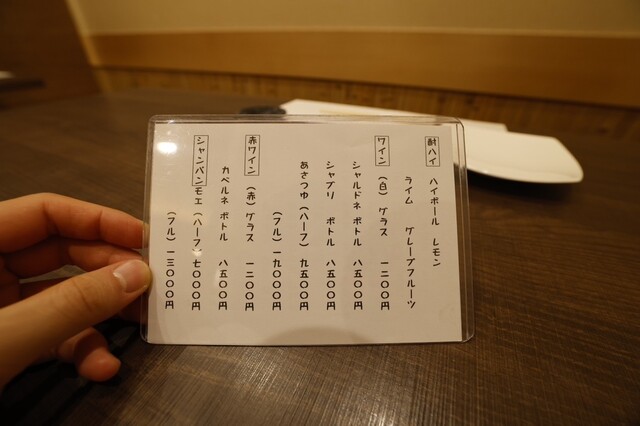 酎ハイ ハイボール レモン
ライム グレープフルーツ
ワイン (白) グラス 一二〇〇円
シャルドネ ボトル 八五〇〇円
シャブリ ボトル 八五〇〇円
あさつゆ (ハーフ) 九五〇〇円
(フル) 一九〇〇〇円
赤ワイン (赤) グラス 一二〇〇円
カベルネ ボトル 八五〇〇円
シャンパン モエ (ハーフ) 七〇〇〇円
(フル) 一三〇〇〇円